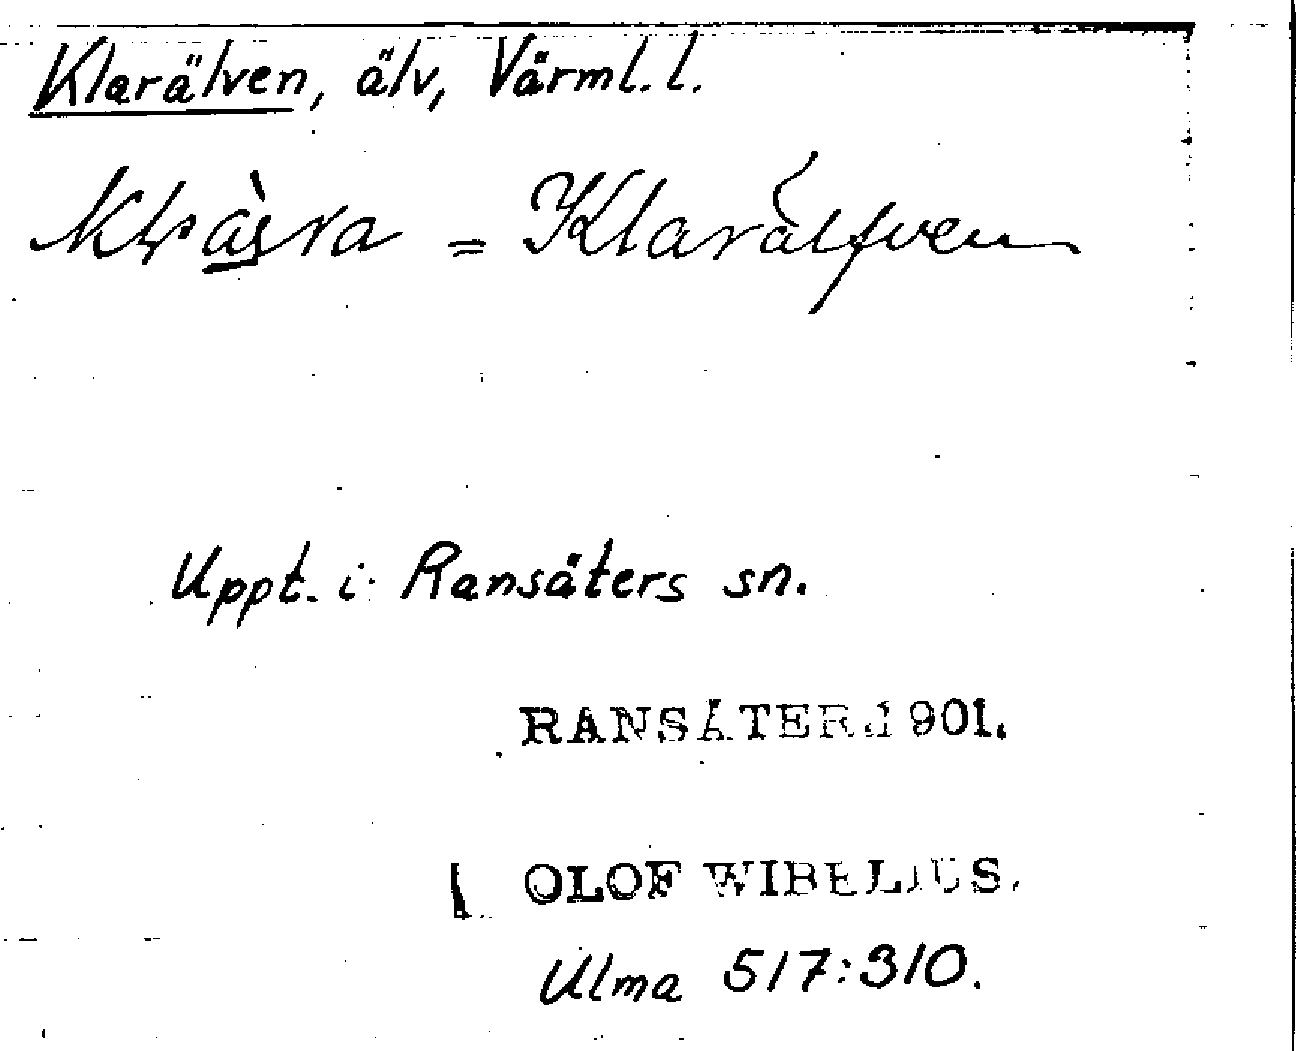 Klarälven, älv, Värml. l.
= Klarälfven
Uppt. i Ransäters sn.
RANSÄTER.1901.
OLOF WIBELIUS.
Ulma 517:310.